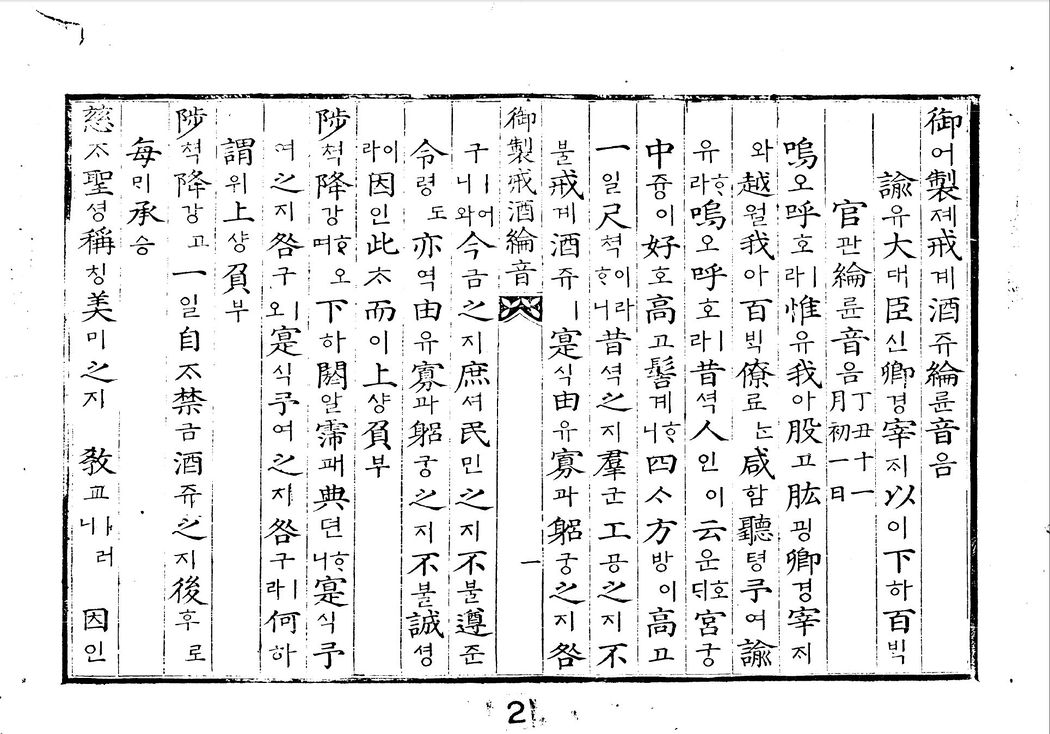 御어製졔戒계酒쥬綸륜音음
諭유大대臣신卿경宰ᄌᆡ以이下하百ᄇᆡᆨ
官관綸륜音음 丁丑十一月初一日
嗚오呼호ㅣ라惟유我아股고肱굉卿경宰ᄌᆡ
와越월我아百ᄇᆡᆨ僚료ᄂᆞᆫ咸함聽텽予여諭
유ᄒᆞ라嗚오呼호ㅣ라昔셕人인이云운호ᄃᆡ宮궁
中즁이好호高고髻계ᄒᆞ니四ᄉᆞ方방이高고
一일尺쳑이라ᄒᆞ니昔셕之지羣군工공之지不
불戒계酒쥬ㅣ寔식由유寡과躬궁之지咎
御製戒酒綸音 一
구ㅣ어니와今금之지庶셔民민之지不불遵준
令령도亦역由유寡과躬궁之지不불誠셩
이라因인此ᄎᆞ而이上샹負부
陟쳑降강ᄒᆞ며오下하閼알霈패典뎐ᄒᆞ니寔식予
여之지咎구ㅣ오寔식予여之지咎구ㅣ라何하
謂위上샹負부
陟쳑降강고一일自ᄌᆞ禁금酒쥬之지後후로
每ᄆᆡ承승
慈ᄌᆞ聖셩稱칭美미之지 敎교ㅣ러니 因인
2